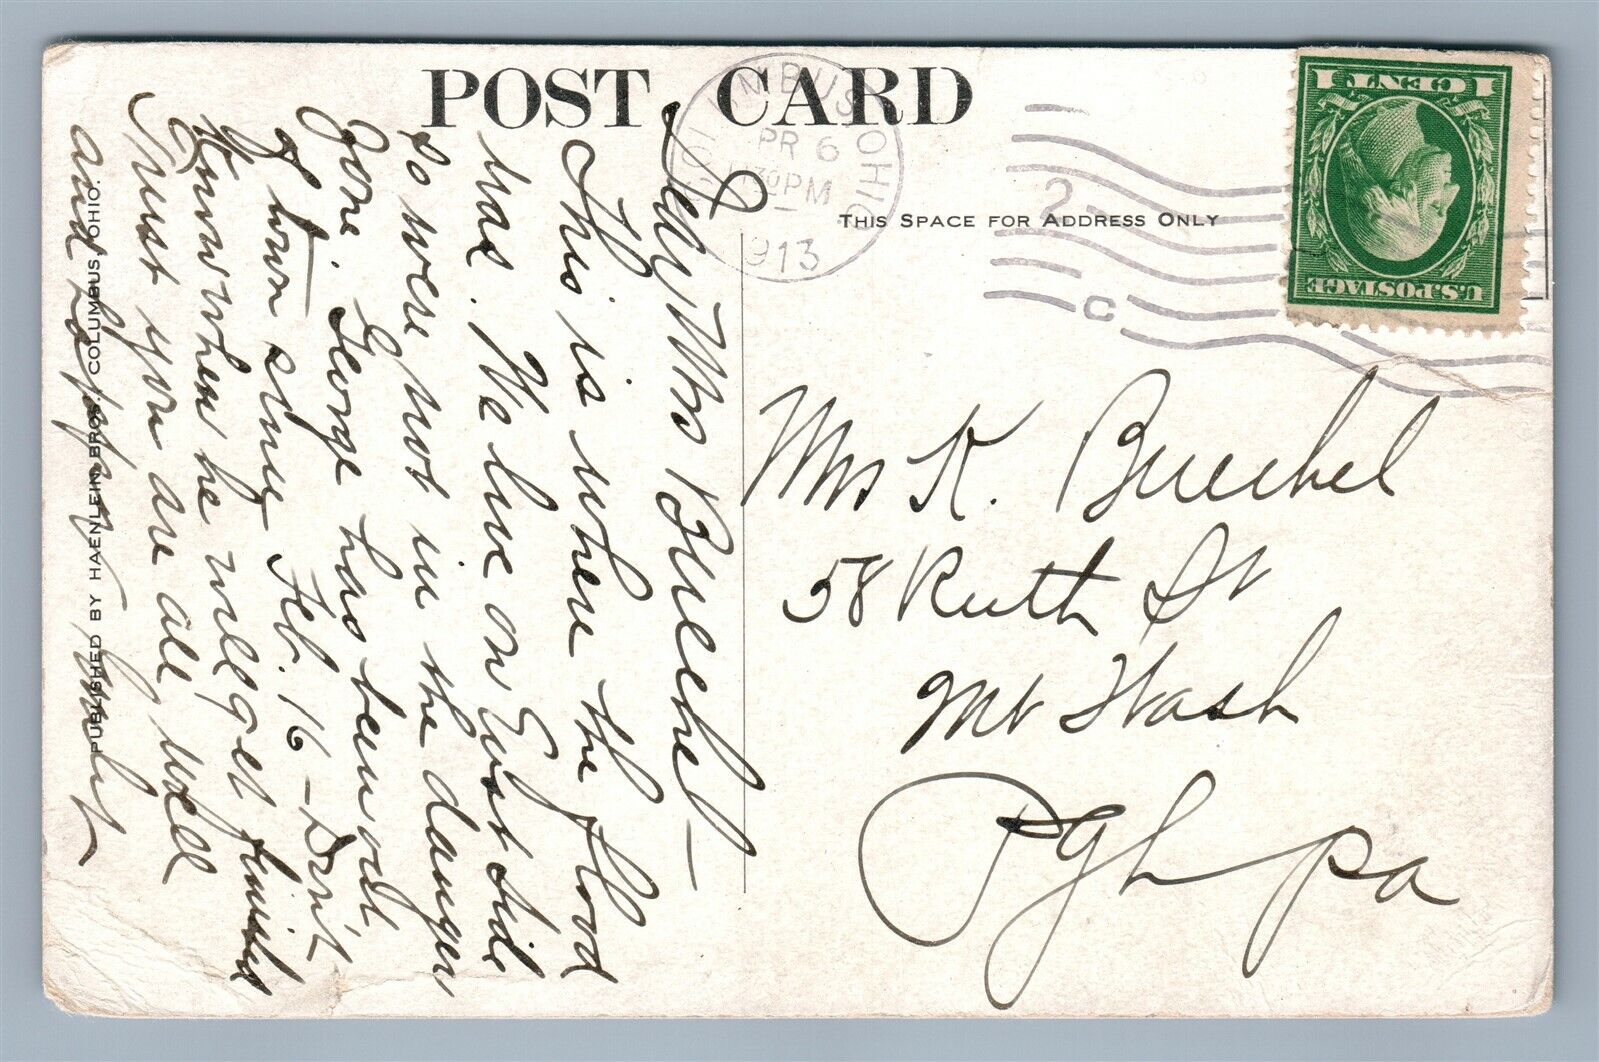 POST CARD
COLUMBUS OHIO
PR 6
130PM
1913
2
C
1 CENT 1
U.S. POSTAGE
THIS SPACE FOR ADDRESS ONLY
Mrs K. Buechel
58 Ruth St
Mt Wash
Pgh Pa
My Mrs Buechel —
This is where the flood
was. We live on East Side
so were not in the danger
Zone. George has been out
of town since Feb. 16 — Don't
Know when he will get finished
Trust you are all well
and happy
PUBLISHED BY HAENLEIN BROS. COLUMBUS, OHIO.